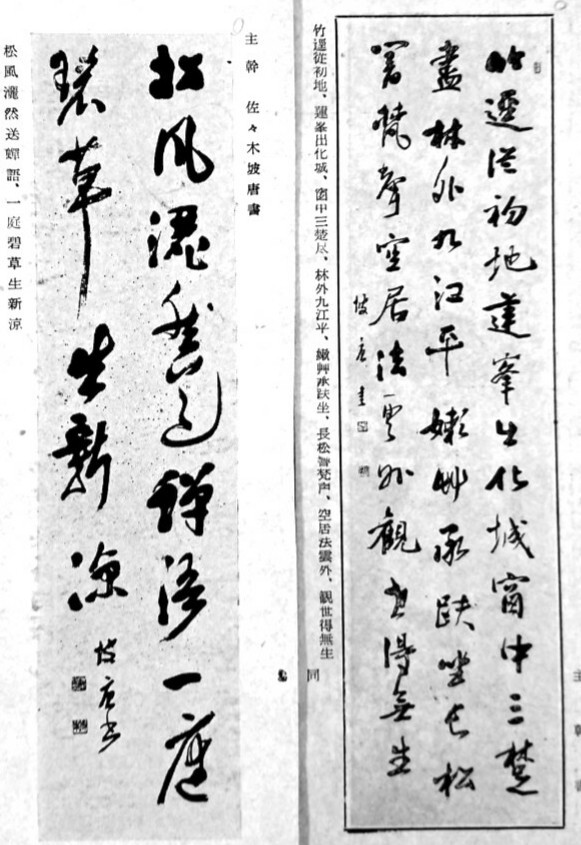 竹逕從初地蓮峯出化城窗中三楚
盡林外九江平嫩艸承趺坐長松
響梵聲空居法雲外觀世得無生
坡唐書
竹逕從初地、蓮峯出化城、窗中三楚尽、林外九江平、嫩艸承趺坐、長松響梵声、空居法雲外、観世得無生
同
主幹 佐々木坡唐書
松風灑然送蟬語一庭
碧草生新涼
坡唐書
松風灑然送蟬語、一庭碧草生新涼